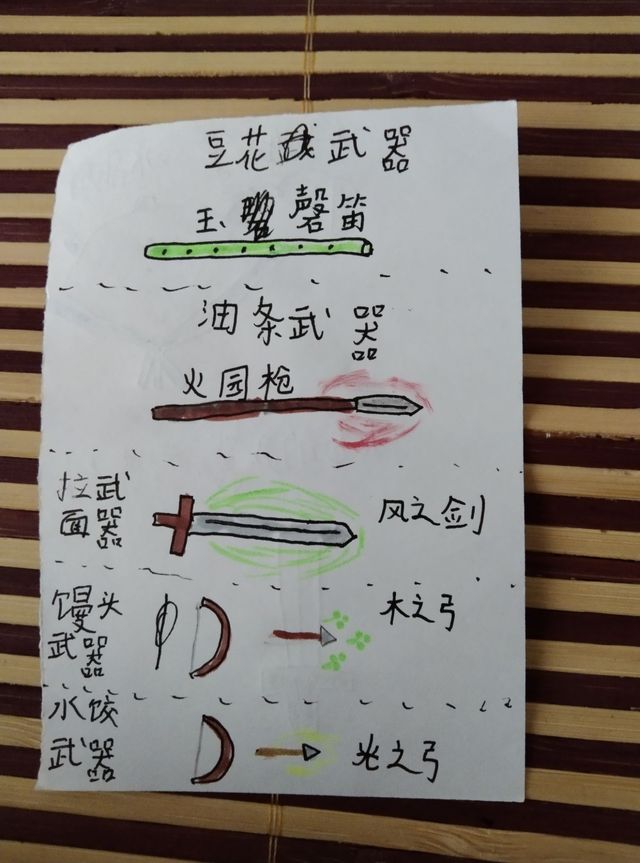 豆花武器
玉磬笛
油条武器
火园枪
拉面武器
风之剑
馒头武器
木之弓
水饺武器
光之弓